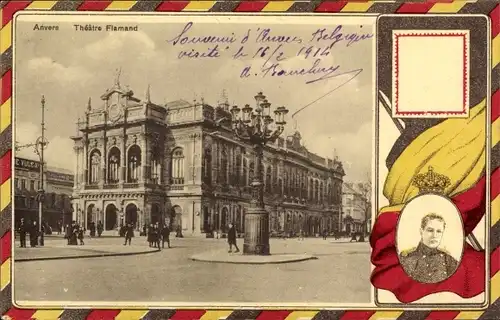 Anvers Théâtre Flamand
Souvenir d'Anvers Belgique
visité le 16/2 1914